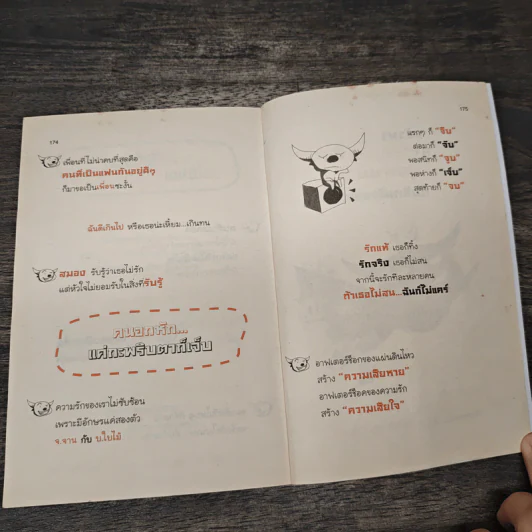 174
เพื่อนที่ไม่น่าคบที่สุดคือ
คนที่เป็นแฟนกันอยู่ดีๆ
ก็มาขอเป็นเพื่อนซะงั้น
ฉันดีเกินไป หรือเธอน่ะเหี้ยม...เกินทน
สมอง รับรู้ว่าเธอไม่รัก
แต่หัวใจไม่ยอมรับในสิ่งที่รับรู้
คนอกหัก...
แค่กะพริบตาก็เจ็บ
ความรักของเราไม่ซับซ้อน
เพราะมีอักษรแค่สองตัว
จ.จาน กับ บ.ใบไม้
175
แรกๆ ก็ "จีบ"
ต่อมาก็ "จับ"
พอสนิทก็ "จูบ"
พอห่างก็ "เจ็บ"
สุดท้ายก็ "จบ"
รักแท้ เธอก็ทิ้ง
รักจริง เธอก็ไม่สน
จากนี้จะรักทีละหลายคน
ถ้าเธอไม่สน...ฉันก็ไม่แคร์
อาฟเตอร์ช็อกของแผ่นดินไหว
สร้าง "ความเสียหาย"
อาฟเตอร์ช็อคของความรัก
สร้าง "ความเสียใจ"